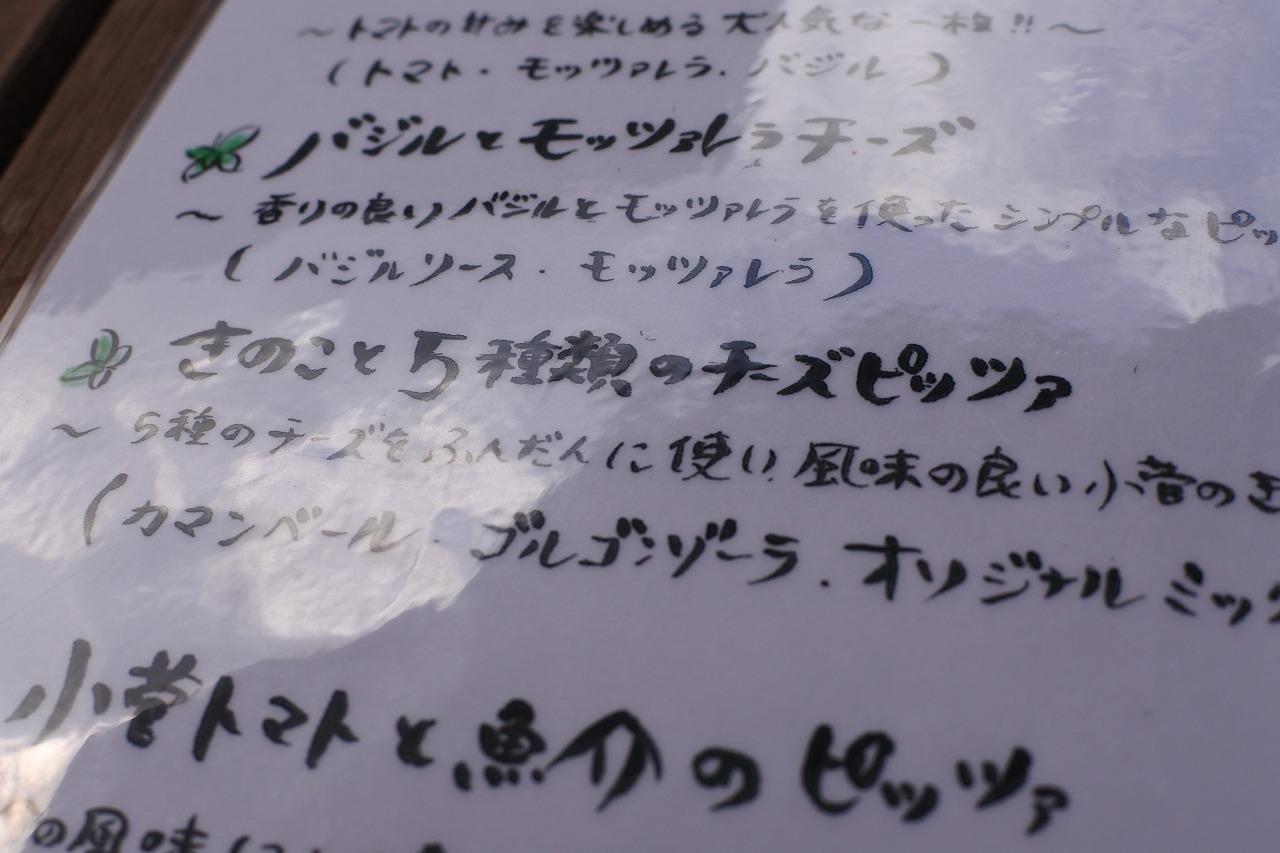 ～トマトの甘みを楽しめる大人気な一枚!!～
(トマト・モッツァレラ・バジル)
バジルとモッツァレラチーズ
～香りの良いバジルとモッツァレラを使ったシンプルなピッ
(バジルソース・モッツァレラ)
きのこと5種類のチーズピッツァ
～5種のチーズをふんだんに使い風味の良い小菅のき
(カマンベール・ゴルゴンゾーラ・オリジナルミック
小菅トマトと魚介のピッツァ
の風味